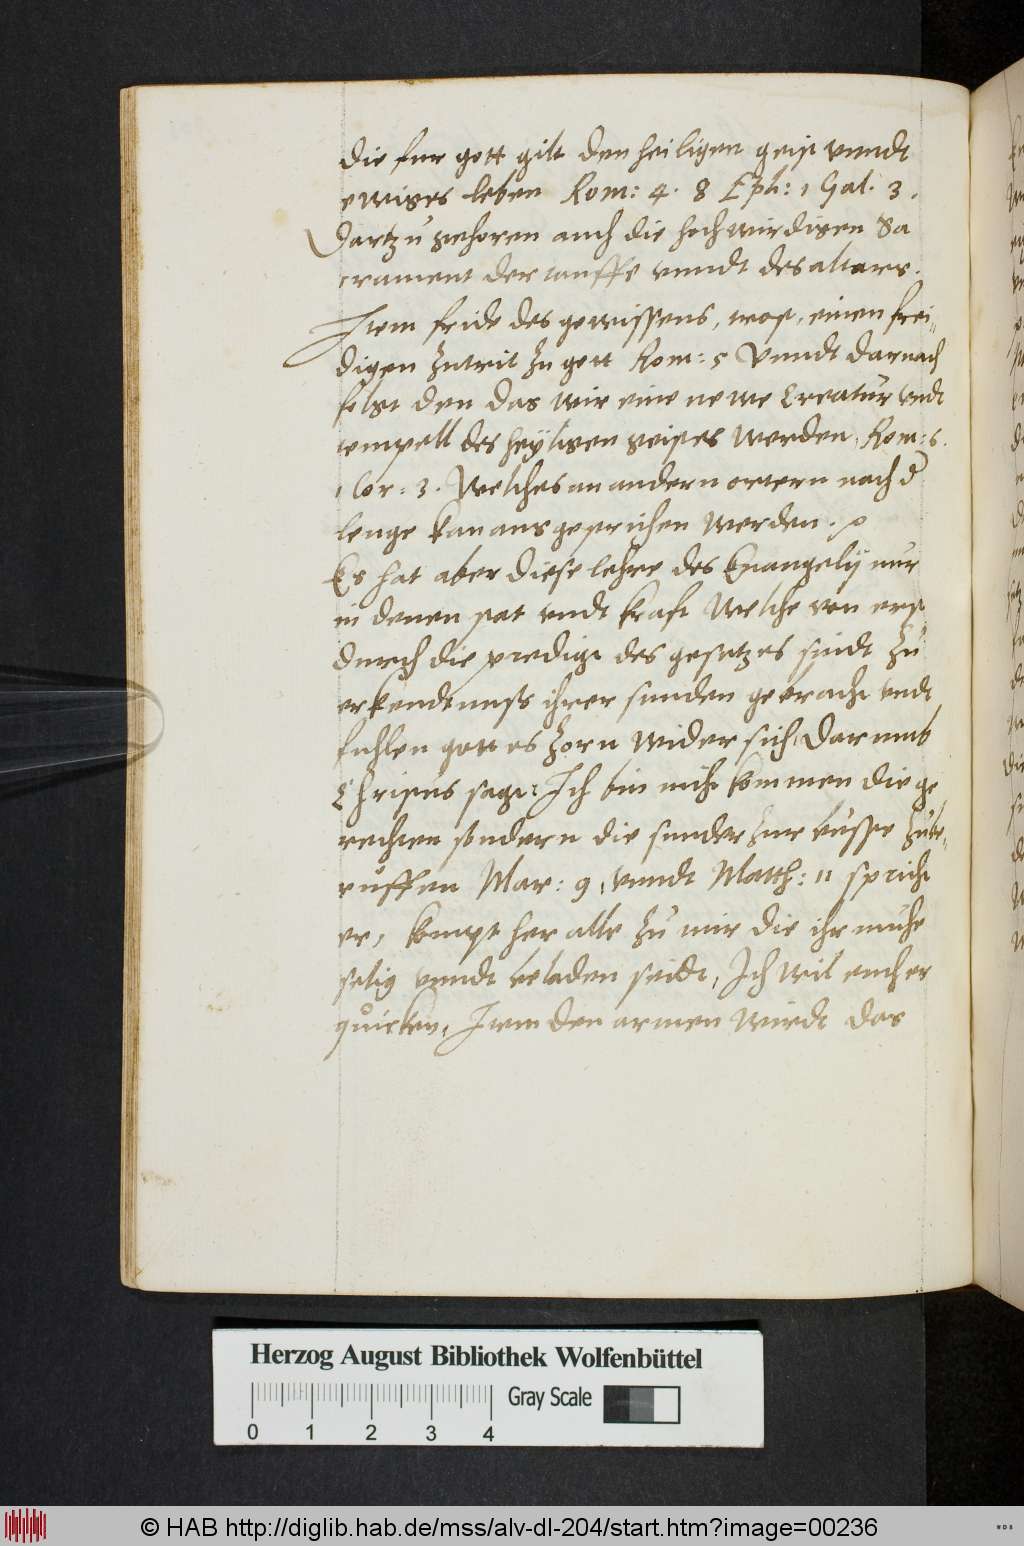 die fur gott gilt den heiligen geist vnndt
ewiges leben Rom: 4. 8 Eph: 1 Gal. 3.
Dartzu gehoren auch die hochwirdigen Sa
crament der tauffe vnndt des altars.
Item fride des gewissens, trost, einen frei„
digen zutrit zu gott Rom: 5 Vnndt darnach
folgt den das wir eine newe Creatur vndt
tempell des heyligen geistes werden, Rom: 6.
1 Cor: 3. Welches an andern ortern nach d
lenge kan ausgestrichen werden.
Es hat aber diese lehre des Euangelij nur
in denen stat vndt kraft Welche von erst
durch die predigt des gesetzes sindt zu
erkendtnuss ihrer sunden gebracht vndt
fuhlen gottes zorn wider sich, Darumb
Christus sagt: Ich bin nicht kommen die ge
rechten sondern die sunder zur busse zube„
ruffen Mar: 9, vnndt Matth: 11 spricht
er, kompt her alle zu mir die ihr muhe
selig vnndt beladen seidt, Ich wil euch er
quicken, Item den armen wirdt das
Herzog August Bibliothek Wolfenbüttel
Gray Scale
0 1 2 3 4
© HAB http://diglib.hab.de/mss/alv-dl-204/start.htm?image=00236